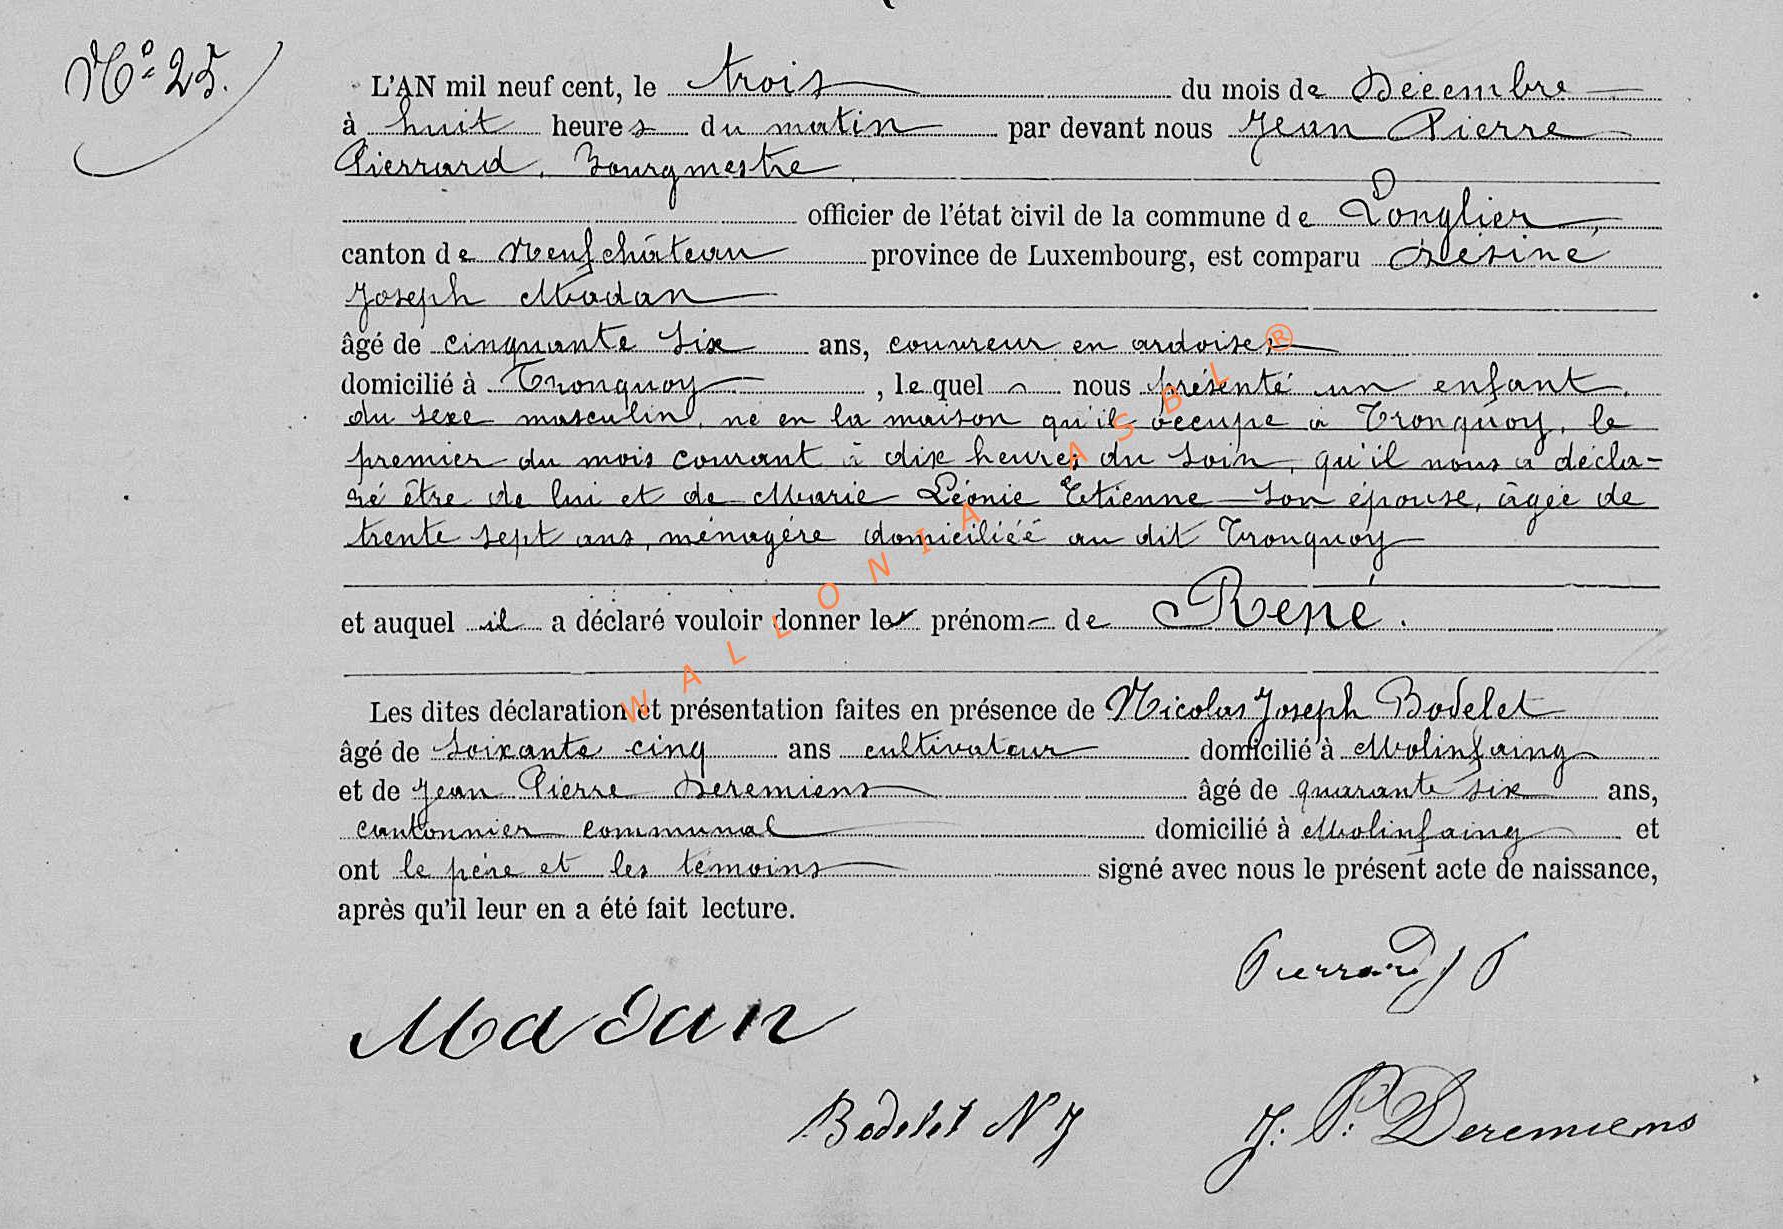 N° 25.
L'AN mil neuf cent, le trois du mois de Décembre
à huit heures du matin par devant nous Jean Pierre
Pierrard, Bourgmestre,
officier de l'état civil de la commune de Longlier,
canton de Neufchâteau province de Luxembourg, est comparu Désiré
Joseph Madan
âgé de cinquante six ans, couvreur en ardoises,
domicilié à Tronquoy, lequel nous présenté un enfant
du sexe masculin, né en la maison qu'il occupe à Tronquoy, le
premier du mois courant à dix heures du soir, qu'il nous a décla-
ré être de lui et de Marie Léonie Etienne son épouse, âgée de
trente sept ans, ménagère domiciliée au dit Tronquoy
et auquel il a déclaré vouloir donner le prénom de René.
Les dites déclaration et présentation faites en présence de Nicolas Joseph Bodelet
âgé de soixante cinq ans cultivateur domicilié à Molinfaing
et de Jean Pierre Deremiens âgé de quarante six ans,
cantonnier communal domicilié à Molinfaing et
ont le père et les témoins signé avec nous le présent acte de naissance,
après qu'il leur en a été fait lecture.
Pierrard J P
Madan
Bodelet N J
J. P. Deremiens
WALLONIA ASBL ®